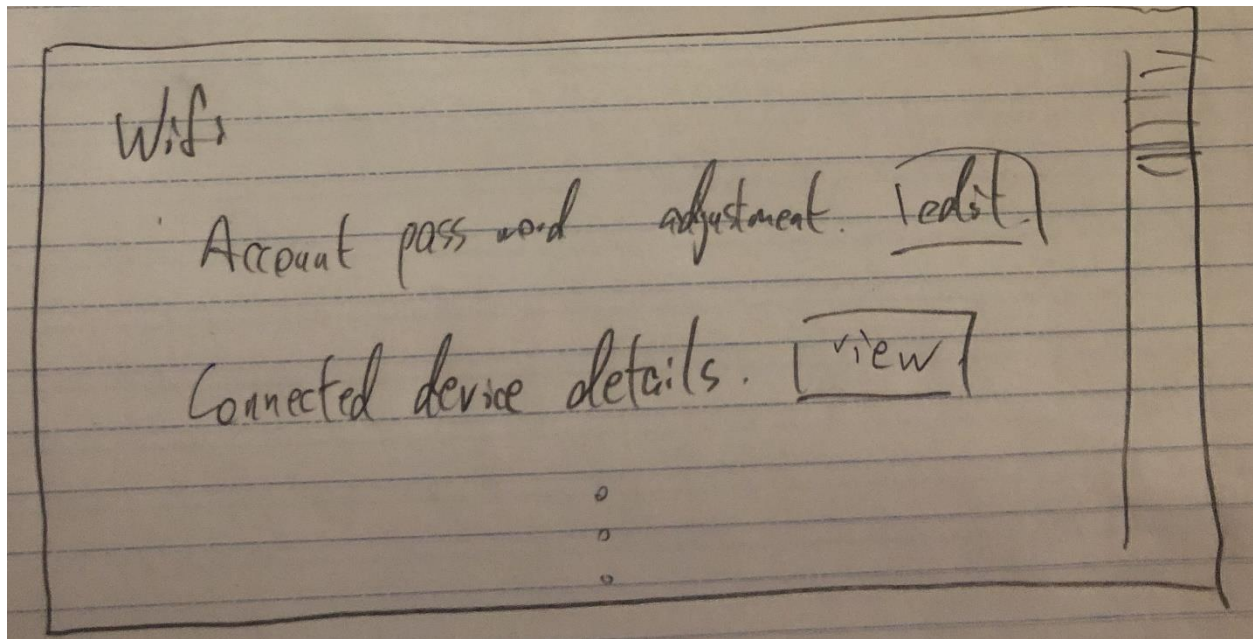 Wifi
Account password adjustment. edit
Connected device details. view